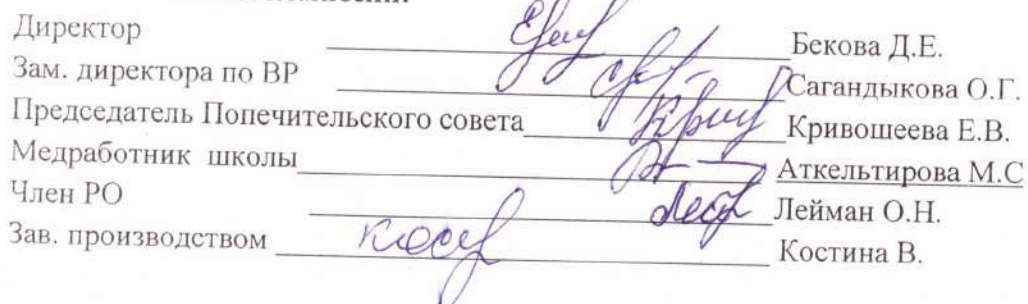 Директор Бекова Д.Е.
Зам. директора по ВР Сагандыкова О.Г.
Председатель Попечительского совета Кривошеева Е.В.
Медработник школы Аткельтирова М.С
Член РО Лейман О.Н.
Зав. производством Костина В.